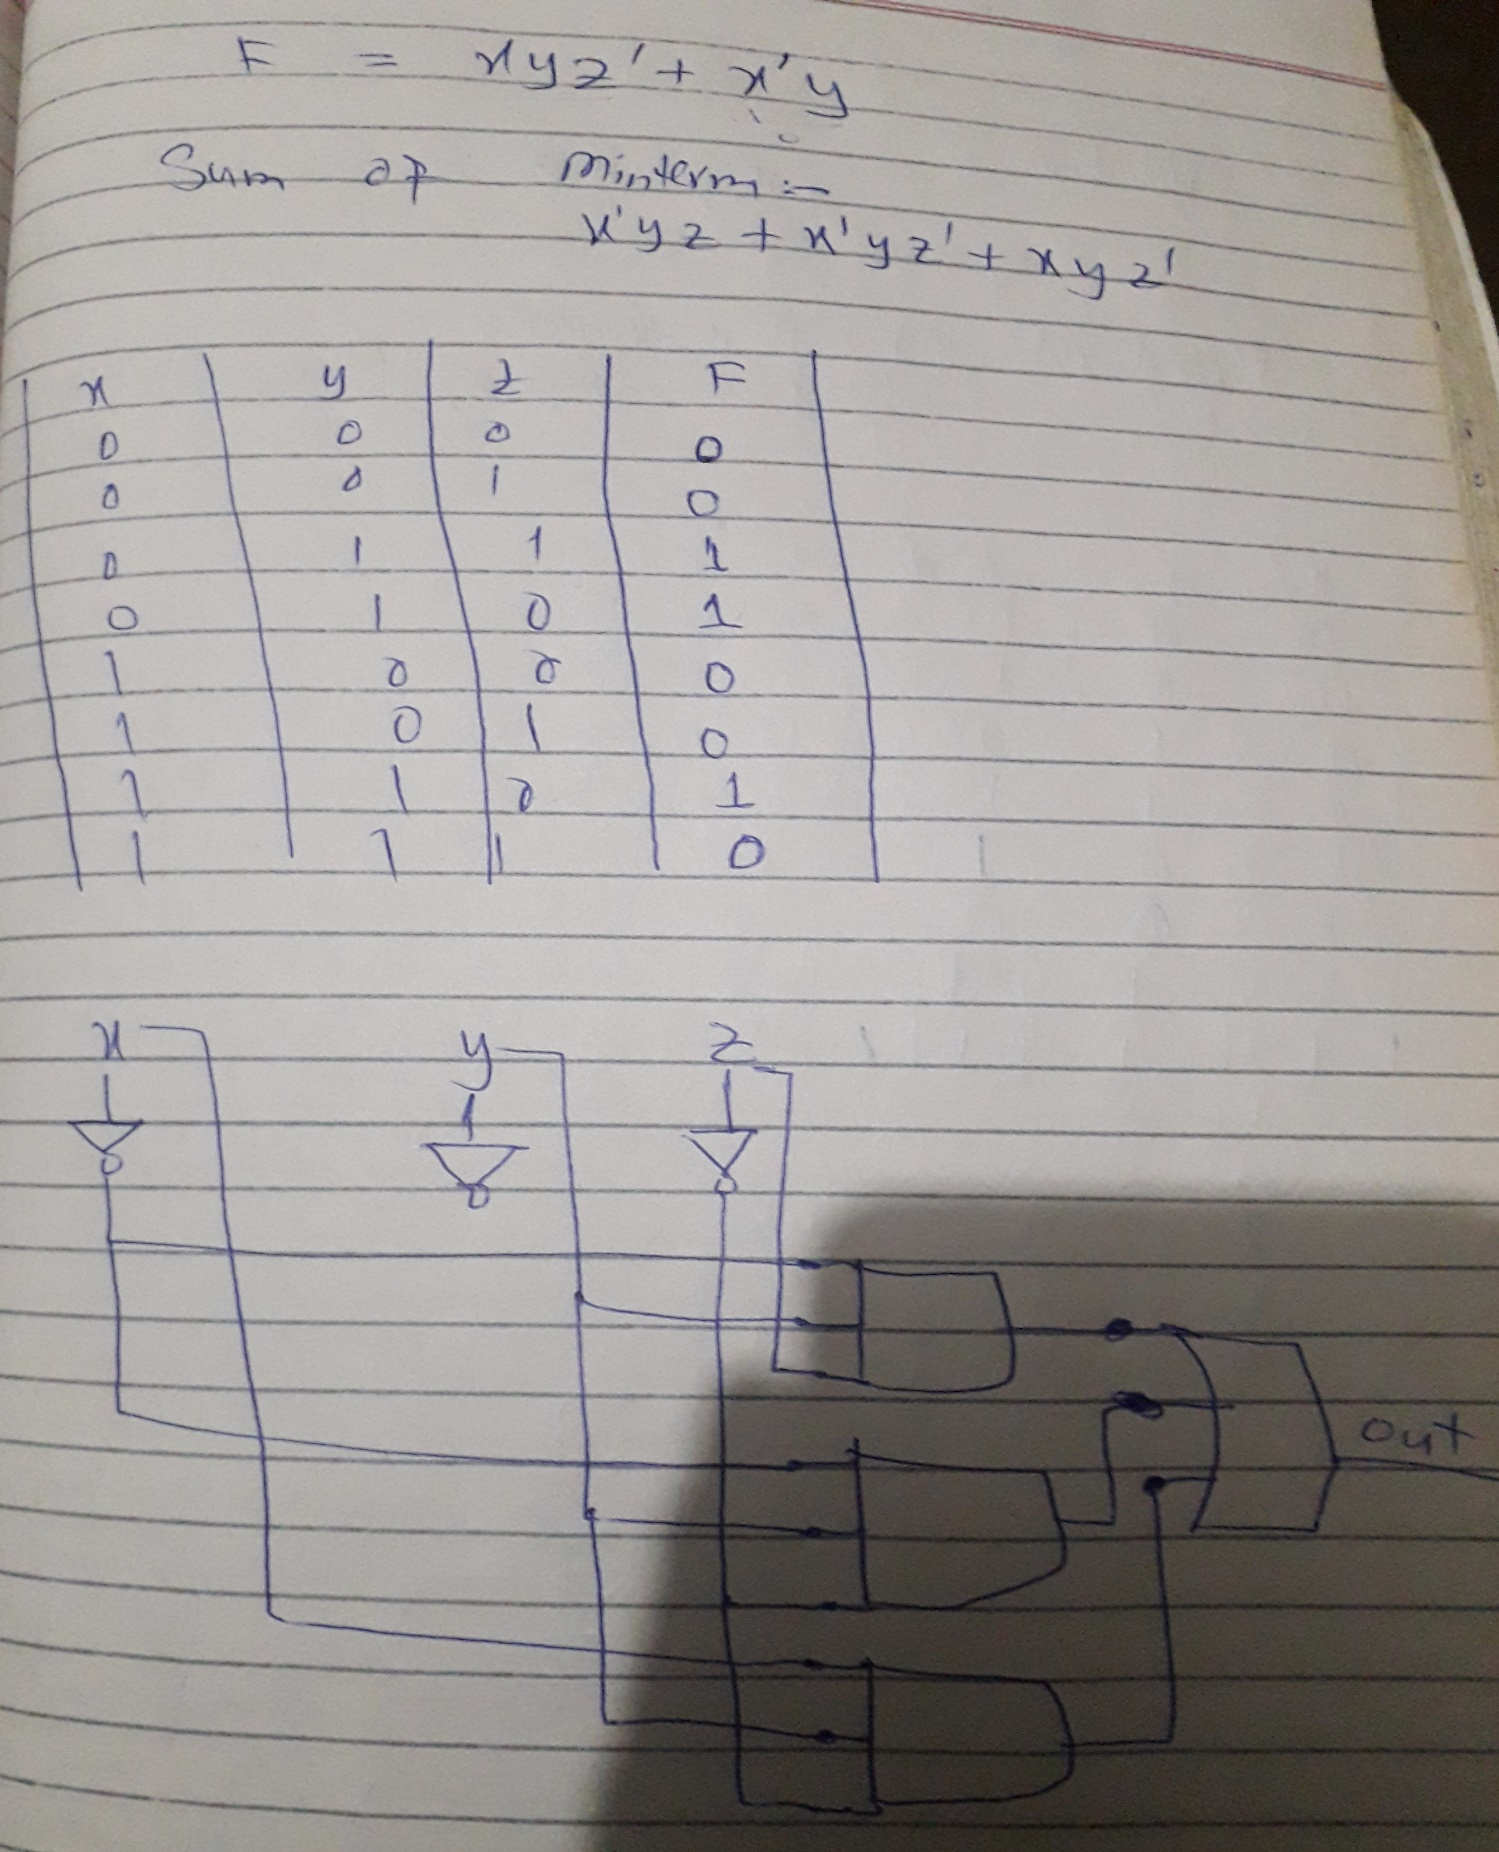 F = xyz' + x'y
Sum of Minterm :-
x'yz + x'yz' + xyz'
x y z F
0 0 0 0
0 0 1 0
0 1 1 1
0 1 0 1
1 0 0 0
1 0 1 0
1 1 0 1
1 1 1 0
x y z
out